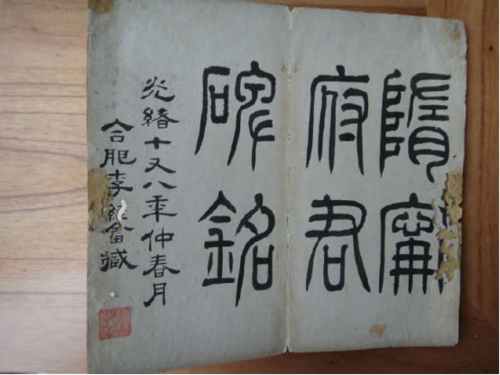 隋甯
府君
碑銘
光緒十又八年仲春月
合肥李經畬藏